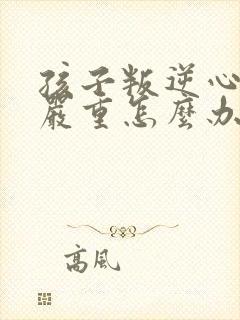 孩子叛逆心
嚴重怎麼办
高風